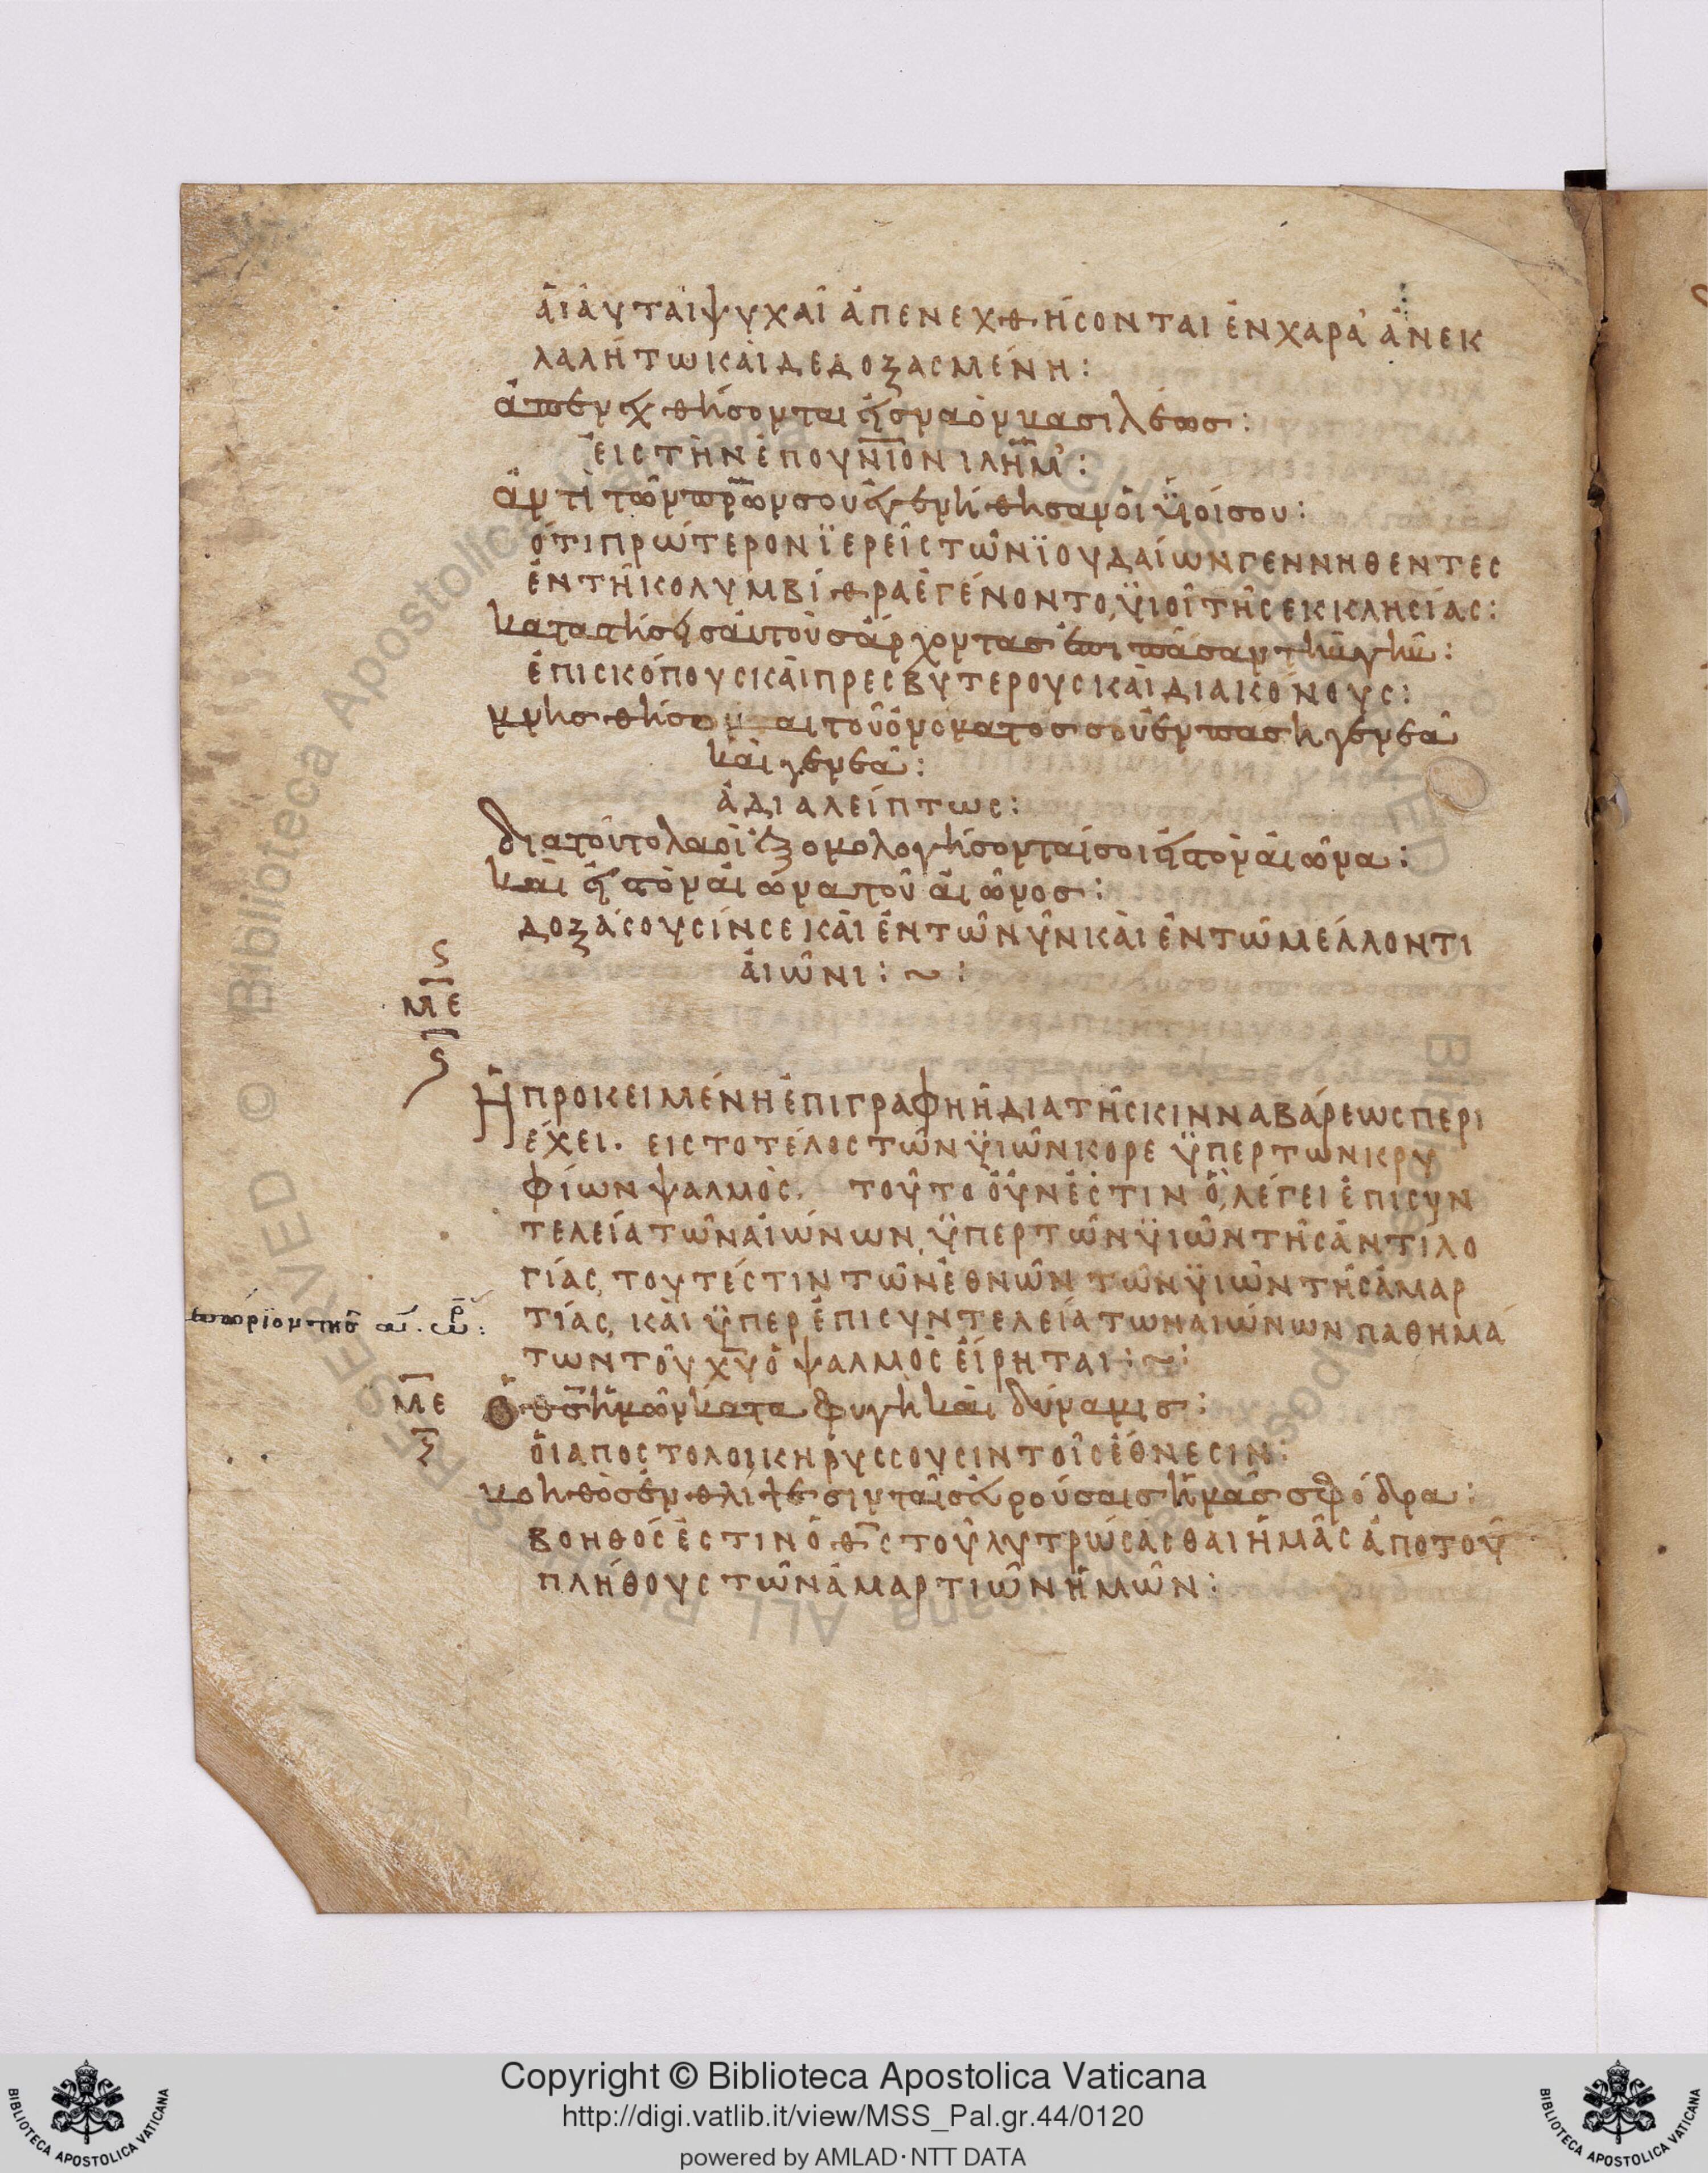 ἁι ἀυται ψυχαὶ ἀπενεχθήσονται ἐν χαρᾶ ἀνεκ
λαλήτω καὶ δεδοξασμένη:
ἀπενεχθήσονται εἰς ναὸν βασιλέως:
ἐις τὴν ἐπουνιον ιλημ:
ἀντὶ τῶν πρων σου ἐγενήθησαν ὁι ὑιόι σου:
ὅτι πρώτερον ϊερεῖς τῶν ϊουδαίων γεννηθεντες
ἐν τῆ κολυμβίθρα ἐγένοντο, ὑιοὶ τῆς εκκλησίας:
καταστήσεις ἀυτοὺς ἄρχοντας ἐπι πᾶσαν τὴν γῆν:
ἐπισκόπους καὶ πρεσβυτερους καὶ διακόνους:
μνησθήσομαι τοῦ ὀνοματός σου ἐν παση γενεᾶ
καὶ γενεᾶ:
ἀδιαλείπτως:
διατοῦτο λαοὶ ἐξομολογήσονταί σοι εἰς τὸν ἀιῶνα:
καὶ εἰς τὸν ἀιῶνα τοῦ ἀιῶνος:
δοξάσουσίν σε καὶ ἐν τῶ νῦν καὶ ἐν τῶ μέλλοντι
ἀιῶνι: ~ :
ϛ
με
ϛ
Ἡ προκειμένη ἐπιγραφὴ ἡ διατῆς κινναβάρεως περι
έχει. εις το τέλος τῶν ὑιῶν κορε ὑπερ των κρυ
φίων ψαλμός. τοῦτο ὀῦν ἐστιν ὅ, λέγει ἐπι συν
τελεία τῶν αἰώνων, ὑπερ τῶν ὑιῶν τῆς ἀντιλο
γίας, τουτέστιν τῶν ἐθνῶν τῶν ὑιῶν τῆς ἁμαρ
τίας, καὶ ὑπερ ἐπι συντελεία των αιώνων παθημά
των τοῦ χυ ὁ ψαλμὸς ἐίρηται: ~ :
με
ξ
Ὁ θς ἡμῶν καταφυγὴ καὶ δύναμις:
ὁι αποστολοι κηρυσσουσιν τοῖς ἐθνεσιν:
βοηθὸς ἐν θλίψεσιν ταῖς ἑυρούσαις ἡμᾶς σφόδρα:
βοηθός ἐστιν ὁ θς τοῦ λυτρώσασθαι ἡμᾶς ἀπο τοῦ
πλήθους τῶν ἁμαρτιῶν ἡμῶν:
Copyright © Biblioteca Apostolica Vaticana
http://digi.vatlib.it/view/MSS_Pal.gr.44/0120
powered by AMLAD·NTT DATA
BIBLIOTECA APOSTOLICA VATICANA
BIBLIOTECA APOSTOLICA VATICANA